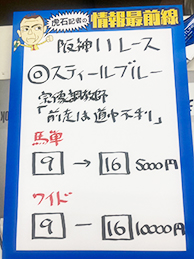 虎石記者の情報最前線
阪神11レース
◎スティールブルー
宗像調教師
「前走は道中不利」
馬単
9→16 5000円
ワイド
9-16 10000円